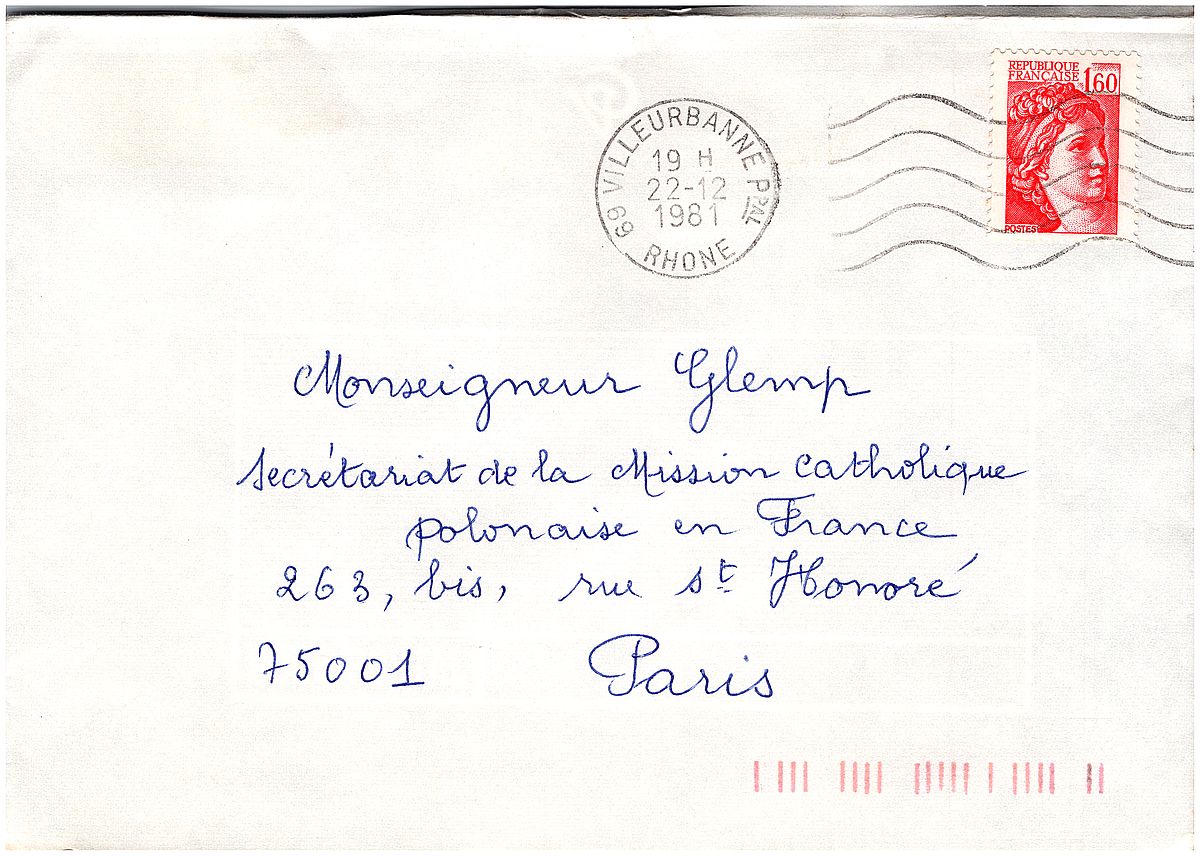 REPUBLIQUE
FRANÇAISE 1,60
POSTES
69 VILLEURBANNE PPAL
19 H
22-12
1981
RHONE
Monseigneur Glemp
secrétariat de la Mission catholique
polonaise en France
263, bis, rue St Honoré
75001 Paris